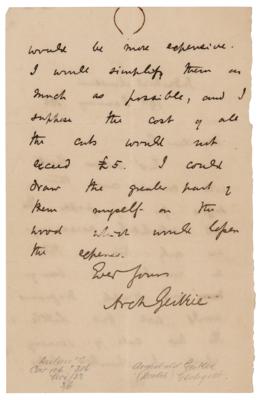 would be more expensive.
I would simplify them as
much as possible, and I
suppose the cost of all
the cuts would not
exceed £5. I could
draw the greater part of
them myself on the
wood which would lessen
the expense.
Ever yours
Arch Geikie
Archibald Geikie
Geologist